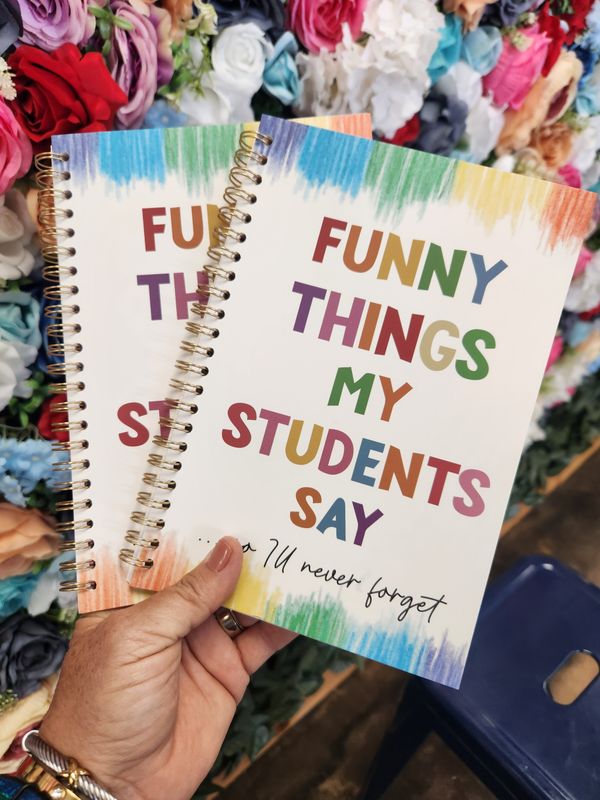 FUNNY
THINGS
MY
STUDENTS
SAY
... I'll never forget